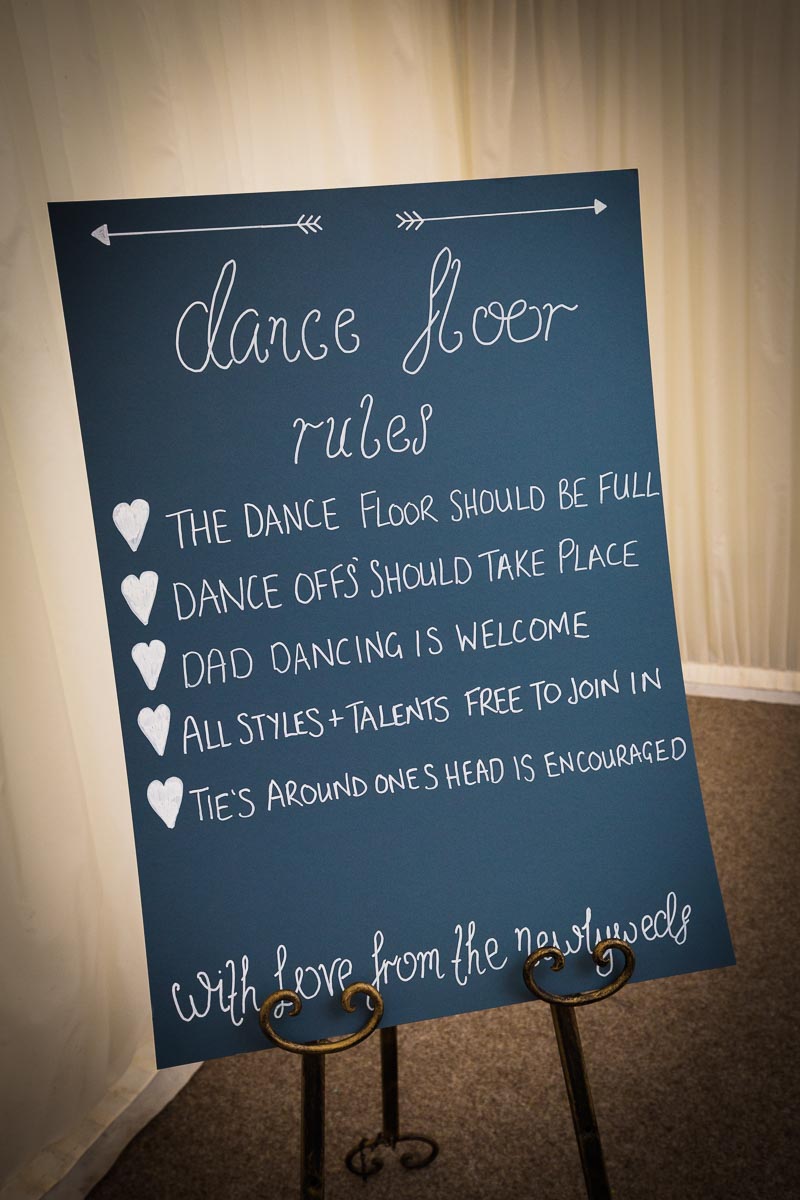 dance floor
rules
THE DANCE FLOOR SHOULD BE FULL
DANCE OFFS' SHOULD TAKE PLACE
DAD DANCING IS WELCOME
ALL STYLES + TALENTS FREE TO JOIN IN
TIE'S AROUND ONES HEAD IS ENCOURAGED
with love from the newlyweds